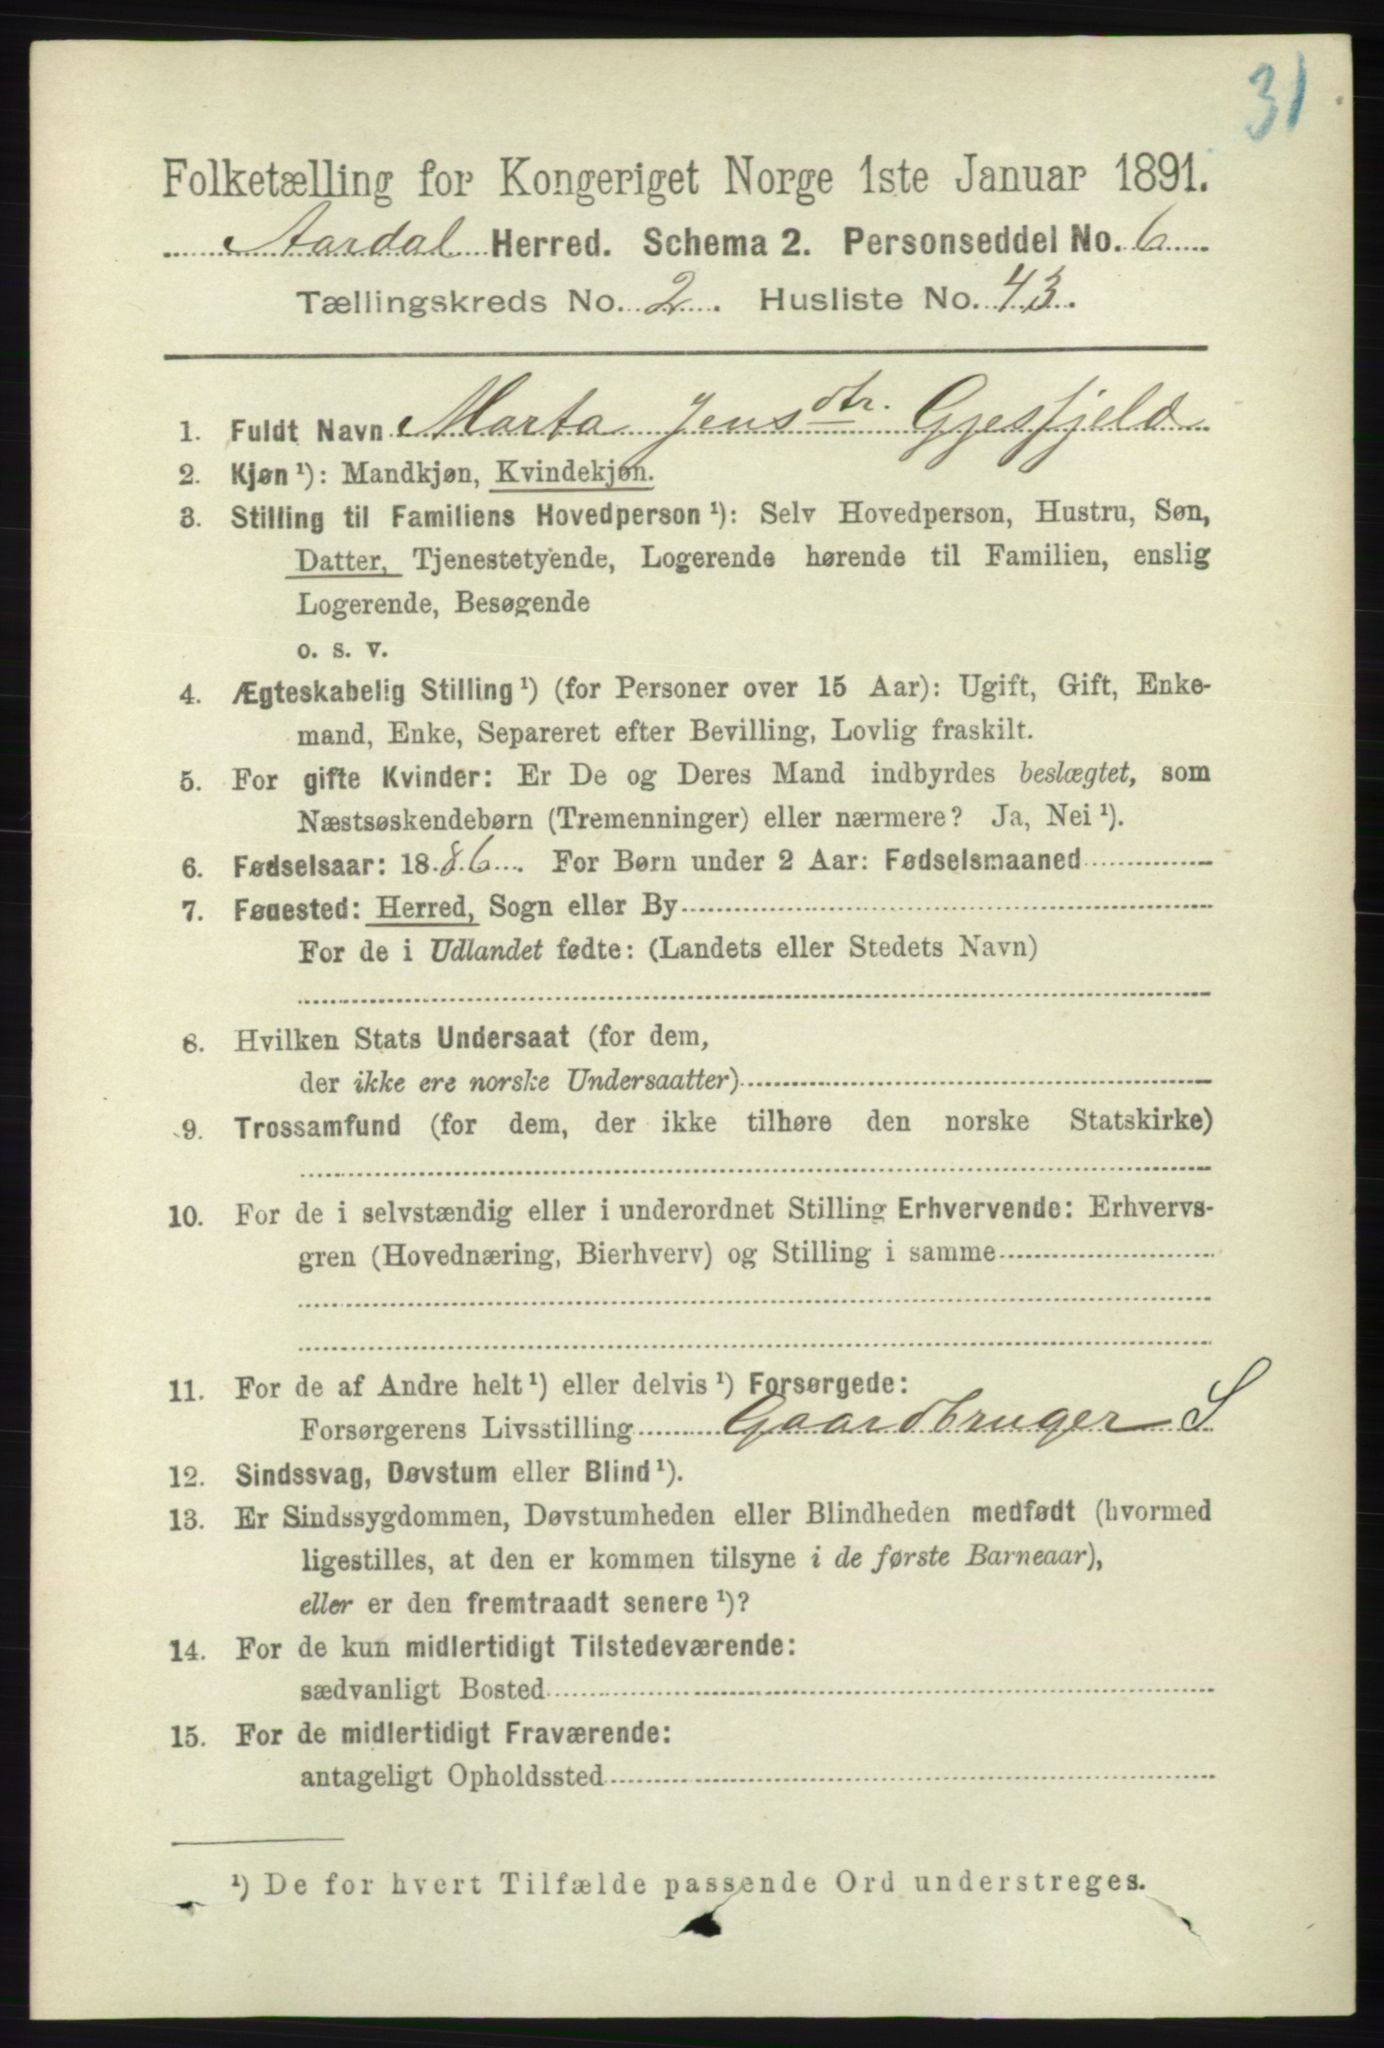 31
Folketælling for Kongeriget Norge 1ste Januar 1891.
Aardal Herred. Schema 2. Personseddel No. 6
Tællingskreds No. 2. Husliste No. 43.
1. Fuldt Navn Marta Jensdtr. Gjesfjeld
2. Kjøn ¹): Mandkjøn, Kvindekjøn.
3. Stilling til Familiens Hovedperson ¹): Selv Hovedperson, Hustru, Søn,
Datter, Tjenestetyende, Logerende hørende til Familien, enslig
Logerende, Besøgende
o. s. v.
4. Ægteskabelig Stilling ¹) (for Personer over 15 Aar): Ugift, Gift, Enke-
mand, Enke, Separeret efter Bevilling, Lovlig fraskilt.
5. For gifte Kvinder: Er De og Deres Mand indbyrdes beslægtet, som
Næstsøskendebørn (Tremenninger) eller nærmere? Ja, Nei ¹).
6. Fødselsaar: 1886. For Børn under 2 Aar: Fødselsmaaned
7. Fødested: Herred, Sogn eller By
For de i Udlandet fødte: (Landets eller Stedets Navn)
8. Hvilken Stats Undersaat (for dem,
der ikke ere norske Undersaatter)
9. Trossamfund (for dem, der ikke tilhøre den norske Statskirke)
10. For de i selvstændig eller i underordnet Stilling Erhvervende: Erhvervs-
gren (Hovednæring, Bierhverv) og Stilling i samme
11. For de af Andre helt ¹) eller delvis ¹) Forsørgede:
Forsørgerens Livsstilling Gaardbruger S
12. Sindssvag, Døvstum eller Blind ¹).
13. Er Sindssygdommen, Døvstumheden eller Blindheden medfødt (hvormed
ligestilles, at den er kommen tilsyne i de første Barneaar),
eller er den fremtraadt senere ¹)?
14. For de kun midlertidigt Tilstedeværende:
sædvanligt Bosted
15. For de midlertidigt Fraværende:
antageligt Opholdssted
¹) De for hvert Tilfælde passende Ord understreges.